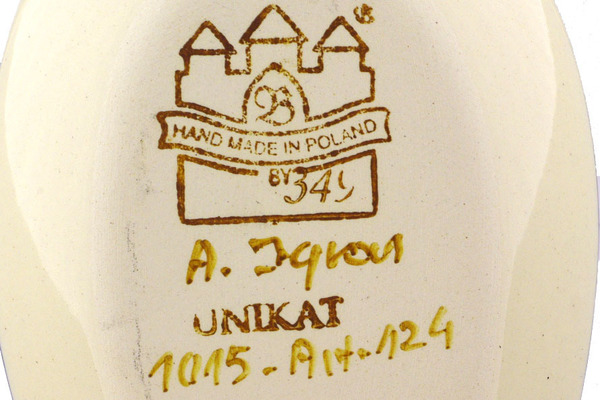 HAND MADE IN POLAND
BY 349
A.
UNIKAT
1015-Art-124